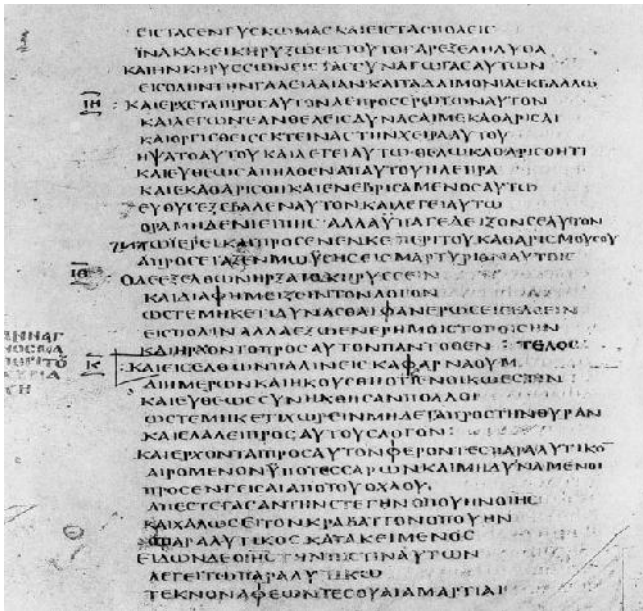 ΕΙϹΤΑϹΕΝΓΥϹΚΩΜΑϹΚΑΙΕΙϹΤΑϹΠΟΛΕΙϹ
ΪΝΑΚΑΚΕΙΚΗΡΥΞΩΕΙϹΤΟΥΤΟΓΑΡΕΞΕΛΗΛΥΘΑ
ΚΑΙΗΝΚΗΡΥϹϹΩΝΕΙϹΤΑϹϹΥΝΑΓΩΓΑϹΑΥΤΩΝ
ΕΙϹΟΛΗΝΤΗΝΓΑΛΙΛΑΙΑΝΚΑΙΤΑΔΑΙΜΟΝΙΑΕΚΒΑΛΛΩ
ΙΗ : ΚΑΙΕΡΧΕΤΑΙΠΡΟϹΑΥΤΟΝΛΕΠΡΟϹΕΡΩΤΩΝΑΥΤΟΝ
ΚΑΙΛΕΓΩΝΕΑΝΘΕΛΕΙϹΔΥΝΑϹΑΙΜΕΚΑΘΑΡΙϹΑΙ
ΚΑΙΟΡΓΙϹΘΕΙϹΕΚΤΕΙΝΑϹΤΗΝΧΕΙΡΑΑΥΤΟΥ
ΗΨΑΤΟΑΥΤΟΥΚΑΙΛΕΓΕΙΑΥΤΩ·ΘΕΛΩΚΑΘΑΡΙϹΘΗΤΙ
ΚΑΙΕΥΘΕΩϹΑΠΗΛΘΕΝΑΠΑΥΤΟΥΗΛΕΠΡΑ
ΚΑΙΕΚΑΘΑΡΙϹΘΗΚΑΙΕΝΕΒΡΙϹΑΜΕΝΟϹΑΥΤΩ
ΕΥΘΥϹΕΞΕΒΑΛΕΝΑΥΤΟΝ·ΚΑΙΛΕΓΕΙΑΥΤΩ
ΟΡΑΜΗΔΕΝΙΕΙΠΗϹ ΑΛΛΑΫΠΑΓΕΔΕΙΞΟΝϹΕΑΥΤΟΝ
ΤΩΪΕΡΕΙΚΑΙΠΡΟϹΕΝΕΝΚΕΠΕΡΙΤΟΥΚΑΘΑΡΙϹΜΟΥϹΟΥ
ΑΠΡΟϹΕΤΑΞΕΝΜΩΥϹΗϹΕΙϹΜΑΡΤΥΡΙΟΝΑΥΤΟΙϹ
ΙΘ : ΟΔΕΕΞΕΛΘΩΝΗΡΞΑΤΟΚΗΡΥϹϹΕΙΝ
ΚΑΙΔΙΑΦΗΜΕΙΖΕΙΝΤΟΝΛΟΓΟΝ
ΩϹΤΕΜΗΚΕΤΙΔΥΝΑϹΘΑΙΦΑΝΕΡΩϹΕΙϹΕΛΘΕΙΝ
ΕΙϹΠΟΛΙΝΑΛΛΑΕΞΩΕΝΕΡΗΜΟΙϹΤΟΠΟΙϹΗΝ
ΚΑΙΗΡΧΟΝΤΟΠΡΟϹΑΥΤΟΝΠΑΝΤΟΘΕΝ : ΤΕΛΟϹ
Κ : ΚΑΙΕΙϹΕΛΘΩΝΠΑΛΙΝΕΙϹΚΑΦΑΡΝΑΟΥΜ
ΔΙΗΜΕΡΩΝΚΑΙΗΚΟΥϹΘΗΟΤΙΕΝΟΙΚΩΕϹΤΙΝ
ΚΑΙΕΥΘΕΩϹϹΥΝΗΧΘΗϹΑΝΠΟΛΛΟΙ
ΩϹΤΕΜΗΚΕΤΙΧΩΡΕΙΝΜΗΔΕΤΑΠΡΟϹΤΗΝΘΥΡΑΝ
ΚΑΙΕΛΑΛΕΙΠΡΟϹΑΥΤΟΥϹΛΟΓΟΝ :
ΚΑΙΕΡΧΟΝΤΑΙΠΡΟϹΑΥΤΟΝΦΕΡΟΝΤΕϹΠΑΡΑΛΥΤΙΚΟ
ΑΙΡΟΜΕΝΟΝΫΠΟΤΕϹϹΑΡΩΝΚΑΙΜΗΔΥΝΑΜΕΝΟΙ
ΠΡΟϹΕΝΓΕΙϹΑΙΑΠΟΤΟΥΟΧΛΟΥ
ΑΠΕϹΤΕΓΑϹΑΝΤΗΝϹΤΕΓΗΝΟΠΟΥΗΝΟΙΗϹ
ΚΑΙΧΑΛΩϹΕΙΤΟΝΚΡΑΒΑΤΤΟΝΟΠΟΥΗΝ
ΟΠΑΡΑΛΥΤΙΚΟϹΚΑΤΑΚΕΙΜΕΝΟϹ
ΕΙΔΩΝΔΕΟΙΗϹΤΗΝΠΙϹΤΙΝΑΥΤΩΝ
ΛΕΓΕΙΤΩΠΑΡΑΛΥΤΙΚΩ
ΤΕΚΝΟΝΑΦΕΩΝΤΕϹΟΥΑΙΑΜΑΡΤΙΑΙ